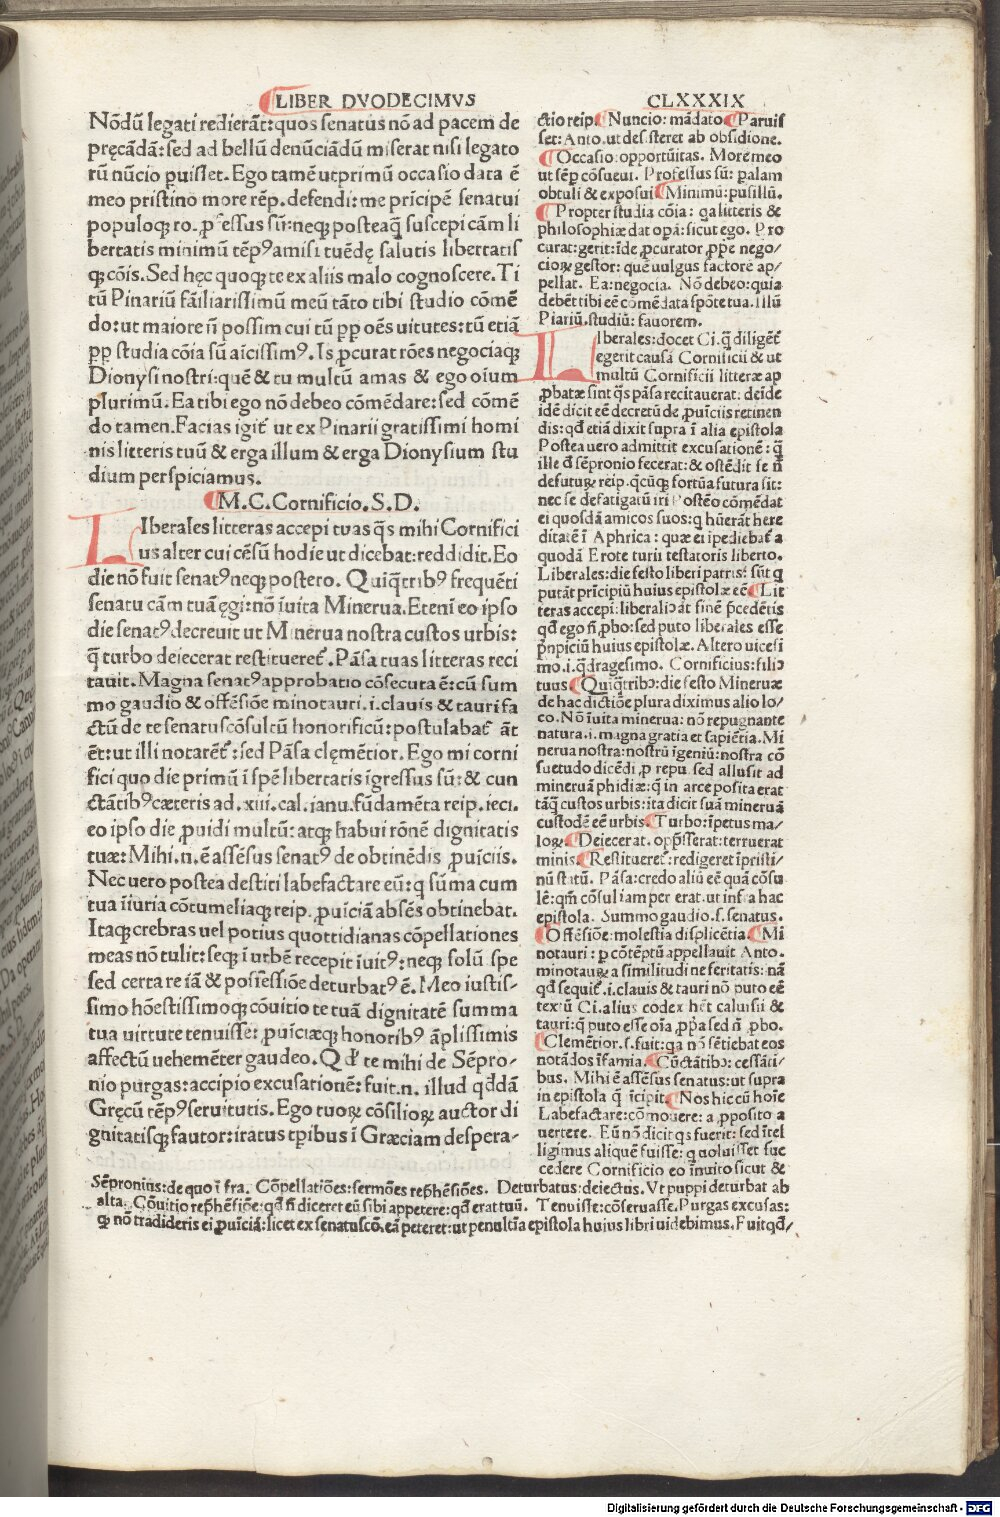 LIBER DVODECIMVS
CLXXXIX
Nōdū legati redierāt: quos senatus nō ad pacem de
pręcādā: sed ad bellū denūciādū miserat nisi legato
rū nūcio puisset. Ego tamē utprimū occasio data ē
meo pristino more rēp. defendi: me pricipē senatui
populoqꝫ ro. ꝓfessus sū: neqꝫ posteaq̄ suscepi cām li
bertatis minimū tēpꝰ amisi tuēdę salutis libertatis
qꝫ cōis. Sed hęc quoqꝫ te ex aliis malo cognoscere. Ti
tū Pinariū fāiliarissimū meū tāto tibi studio cōmē
do: ut maiore ñ possim cui tū ꝓp oēs uitutes: tū etiā
ꝓp studia cōia sū aīcissimꝰ. Is ꝓcurat rōes negociaqꝫ
Dionysi nostri: quē & tu multū amas & ego oīum
plurimū. Ea tibi ego nō debeo cōmēdare: sed cōmē
do tamen. Facias igit̄ ut ex Pinarii gratissimi homi
nis litteris tuū & erga illum & erga Dionysium stu
dium perspiciamus.
M. C. Cornificio. S. D.
LIberales litteras accepi tuas q̄s mihi Cornifici
us alter cui cēsū hodie ut dicebat: reddidit. Eo
die nō fuit senatꝰ neqꝫ postero. Quiq̄tribꝰ frequēti
senatu cām tuā ęgi: nō īuita Minerua. Etenī eo ipso
die senatꝰ decreuit ut Minerua nostra custos urbis:
q̄ turbo deiecerat restitueret̄. Pāsa tuas litteras reci
tauit. Magna senatꝰ approbatio cōsecuta ē: cū sum
mo gaudio & offēsiōe minotauri. i. clauis & tauri fa
ctū de te senatuscōsultū honorificū: postulabat̄ āt
ēt: ut illi notarēt̄: sed Pāsa clęmētior. Ego mi corni
fici quo die primū ī spē libertatis īgressus sū: & cun
ctātibꝰ cæteris ad. xiii. cal. ianu. fūdamēta reip. ieci.
eo ipso die ꝓuidi multū: atqꝫ habui rōnē dignitatis
tuæ: Mihi. n. ē assēsus senatꝰ de obtinēdis ꝓuīciis.
Nec uero postea destiti labefactare eū: q sūma cum
tua īiuria cōtumeliaqꝫ reip. ꝓuīciā absēs obtinebat.
Itaqꝫ crebras uel potius quottidianas cōpellationes
meas nō tulit: seqꝫ ī urbē recepit īuitꝰ: neqꝫ solū spe
sed certa re iā & possessiōe deturbatꝰ ē. Meo iustis-
simo hōestissimoqꝫ cōuitio te tuā dignitatē summa
tua uirtute tenuisse: ꝓuīciæqꝫ honoribꝰ āplissimis
affectū uehemēter gaudeo. Qđ te mihi de Sēpro-
nio purgas: accipio excusationē: fuit. n. illud qddā
Gręcū tēpꝰ seruitutis. Ego tuoꝝ cōsilioꝝ auctor di
gnitatisqꝫ fautor: iratus tpibus ī Græciam despera-
ctio reip. Nuncio: mādato Paruis
set: Anto. ut desisteret ab obsidione.
Occasio: opportūitas. More meo
ut sēp cōsueui. Professus sū: palam
obtuli & exposui Minimū: pusillū.
Propter studia cōia: qa litteris &
philosophiæ dat opā: sicut ego. Pro
curat: gerit: īde ꝓcurator ꝓp̄e nego/
cioꝝ gestor: quē uulgus factorē ap/
pellat. Ea: negocia. Nō debeo: quia
debēt tibi eē cōmēdata spōte tua. Illū
Piariū. studiū: fauorem.
LIberales: docet Ci. q̄ diligēt̄
egerit causā Cornificii & ut
multū Cornificii litteræ ap
ꝓbatæ sint q̄s pāsa recitauerat: deīde
idē dicit eē decretū de ꝓuīciis retinen
dis: qđ etiā dixit supra ī alia epistola
Postea uero admittit excusationē: q̄
ille đ sēpronio fecerat: & ostēdit se ñ
defuturꝝ reip. qcūqꝫ fortūa futura sit:
nec se defatigatū iri Postēo cōmēdat
ei quosdā amicos suos: q hūerāt here
ditatē ī Aphrica: quæ ei īpediebat̄ a
quodā Erote turii testatoris liberto.
Liberales: die festo liberi patris: sūt q
putāt prīcipiū huius epistolæ eē Lit
teras accepi: liberaliƆ āt finē p̄cedētis
qđ ego ñ ꝓbo: sed puto liberales esse
p̄ncipiū huius epistolæ. Altero uicesi
mo. i. q̄dragesimo. Cornificius: filiƆ
tuus Quiq̄tribƆ: die festo Mineruæ
de hac dictiōe plura diximus alio lo/
co. Nō īuita minerua: nō repugnante
natura. i. magna gratia et sapiētia. Mi
nerua nostra: nostrū īgeniū: nostra cō
suetudo dicēdi, ꝓ repu. sed allusit ad
mineruā phidiæ: q̄ in arce posita erat
tāq̄ custos urbis: ita dicit suā mineruā
custodē eē urbis Turbo: īpetus ma/
loꝝ Deiecerat. opp̄sserat: terruerat
minis Restitueret̄: redigeret ī pristi/
nū statū. Pāsa: credo aliū eē quā cōsu
lē: qm̄ cōsul iam per erat. ut infra hac
epistola. Summo gaudio. s. senatus.
Offēsiōe: molestia displicētia. Mi
notauri: p cōtēptū appellauit Anto.
minotauꝝ a similitudine feritatis: nā
qđ sequit̄. i. clauis & tauri nō puto eē
textū Ci. alius codex het caluisii &
tauri: q̄ puto esse oīa ꝓp̄a sed ñ ꝓbo.
Clemētior. s. fuit: qa nō sētiebat eos
notādos īfamia. CūctātibƆ: cessāti/
bus. Mihi ē assēsus senatus: ut supra
in epistola q̄ īcipit Nos hic cū hoīe
Labefactare: cōmouere: a ꝓposito a
uertere. Eū nō dicit qs fuerit: sed ītel
ligimus aliquē fuisse: q uoluisset suc
cedere Cornificio eo īnuito sicut &
Sēpronius: de quo īfra. Cōpellatiōes: sermōes repħēsiōes. Deturbatus: deiectus. Vt puppi deturbat ab
alta. Cōuitio repħēsiōe: qđ ñ diceret eū sibi appetere: qđ erat tuū. Tenuisse: cōseruasse. Purgas excusas:
qꝫ nō tradideris ei ꝓuīciā: licet ex senatuscō. eā peteret: ut penultīa epistola huius libri uidebimus. Fuit qđ/
Digitalisierung gefördert durch die Deutsche Forschungsgemeinschaft - DFG